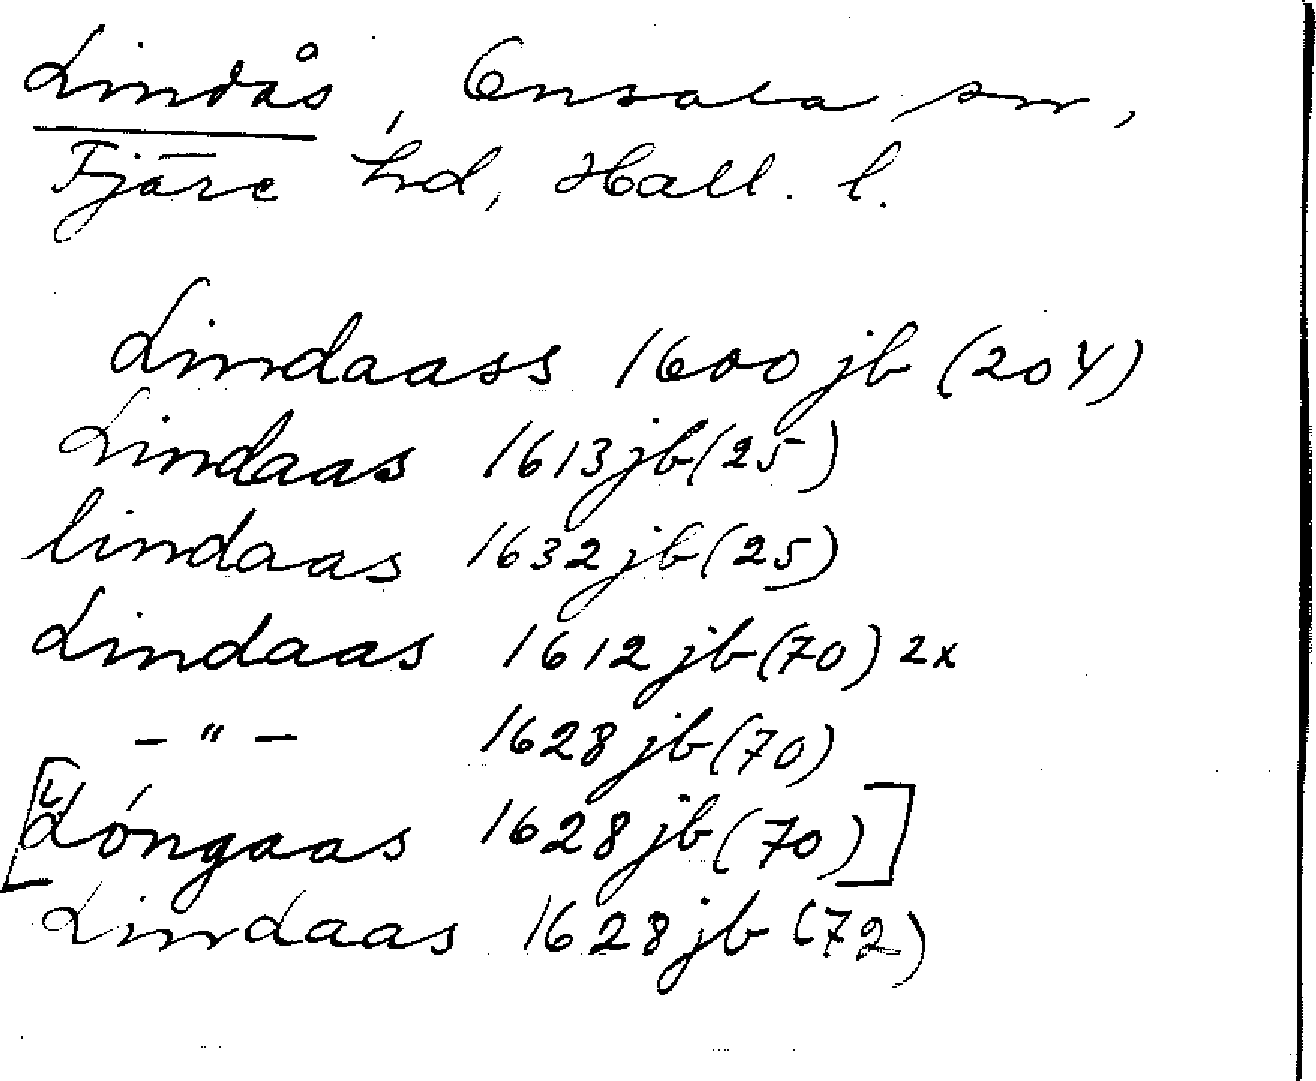 Lindås, Onsala sn,
Fjäre hd, Hall. l.
Lindaass 1600 jb (204)
Lindaas 1613 jb (25)
lindaas 1632 jb (25)
Lindaas 1612 jb (70) 2x
– " – 1628 jb (70)
[Lóngaas 1628 jb (70)]
Lindaas 1628 jb (72)